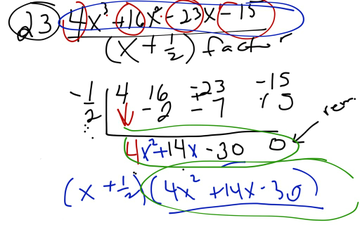 23 4x³+16x²-23x-15
(x+1/2) factor
-1/2 | 4 16 -23 -15
-2 -7 15
4x²+14x-30 0 rem.
(x+1/2)(4x²+14x-30)